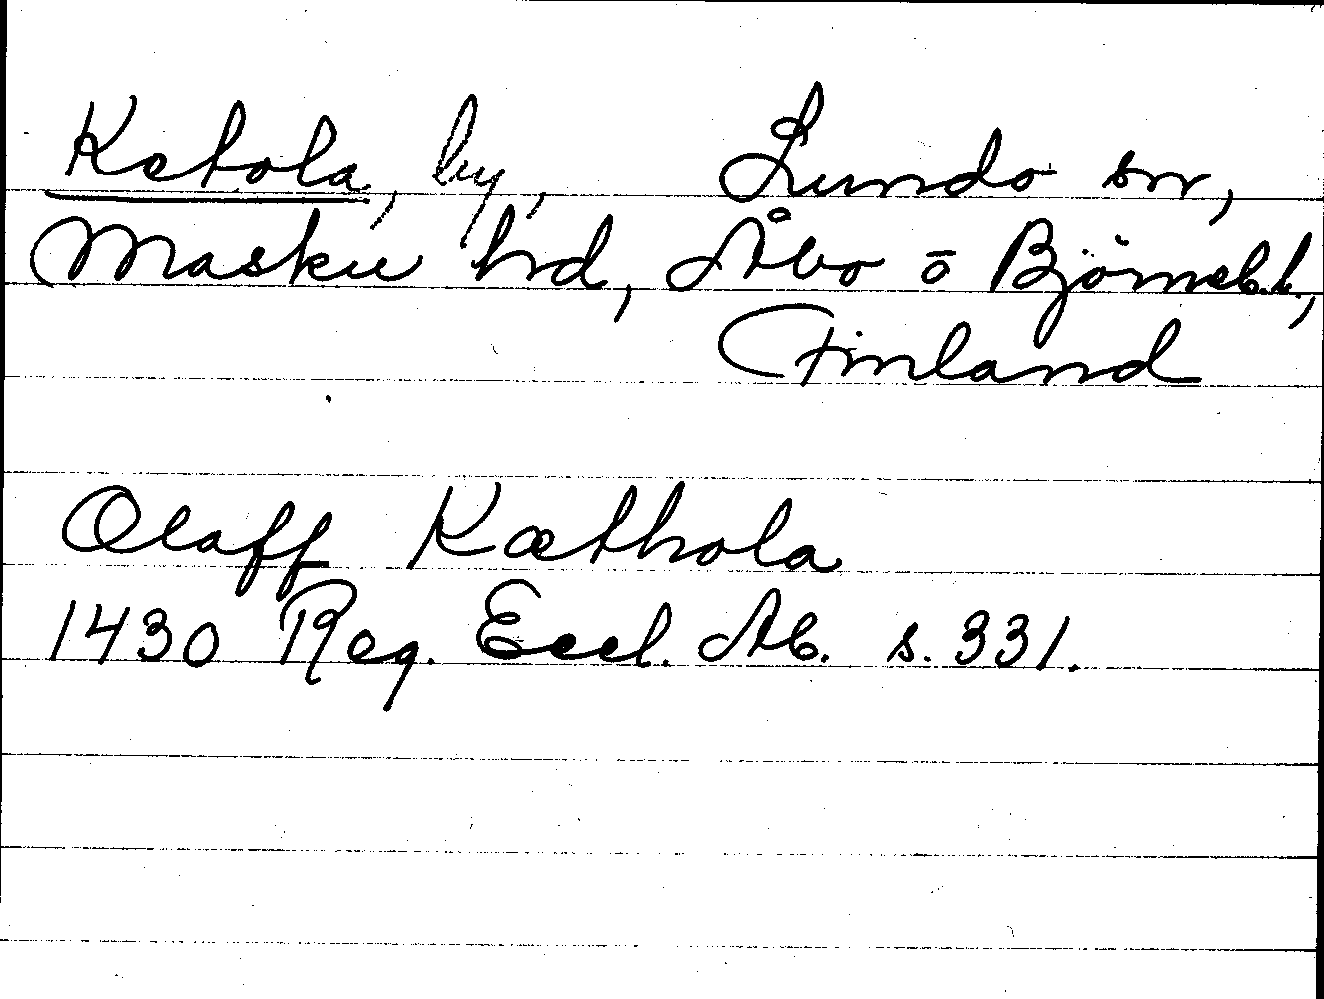 Ketola, by, Lundo sn,
Masku hd, Åbo o Björneb.l.,
Finland
Olaff Kæthola
1430 Reg. Eccl. Ab. s. 331.